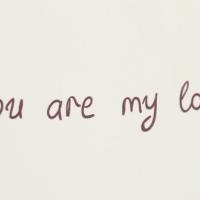 ou are my lo